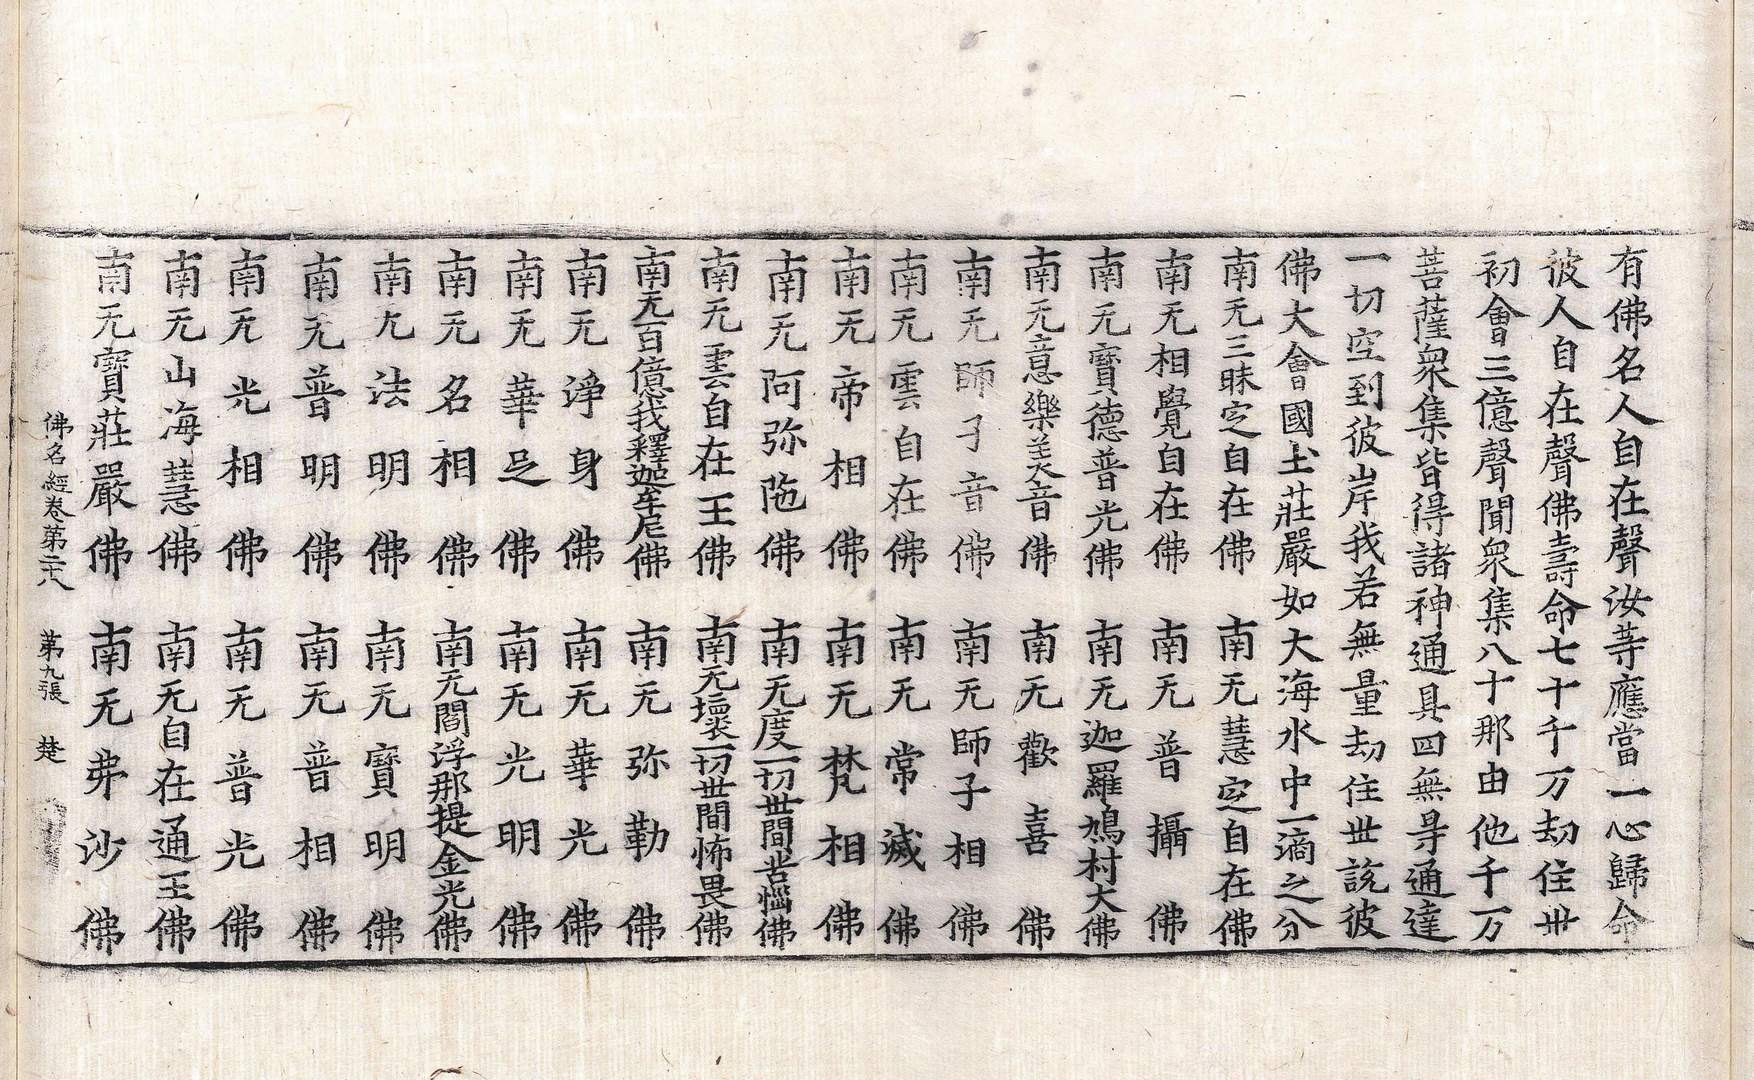 有佛名人自在聲汝等應當一心歸命
彼人自在聲佛壽命七十千万劫住世
初會三億聲聞衆集八十那由他千万
菩薩衆集皆得諸神通具四無㝵通達
一切空到彼岸我若無量劫住世說彼
佛大會國土莊嚴如大海水中一滴之分
南无三昧定自在佛 南无慧定自在佛
南无相覺自在佛 南无普攝佛
南无寶德普光佛 南无迦羅鳩村大佛
南无意樂美音佛 南无歡喜佛
南无師子音佛 南无師子相佛
南无雲自在佛 南无常滅佛
南无帝相佛 南无梵相佛
南无阿弥陁佛 南无度一切世間苦惱佛
南无雲自在王佛 南无壞一切世間怖畏佛
南无百億我釋迦牟尼佛 南无弥勒佛
南无淨身佛 南无華光佛
南无華足佛 南无光明佛
南无名相佛 南无閻浮那提金光佛
南无法明佛 南无寶明佛
南无普明佛 南无普相佛
南无光相佛 南无普光佛
南无山海慧佛 南无自在通王佛
南无寶莊嚴佛 南无弗沙佛
佛名經卷第二十八 第九張 楚